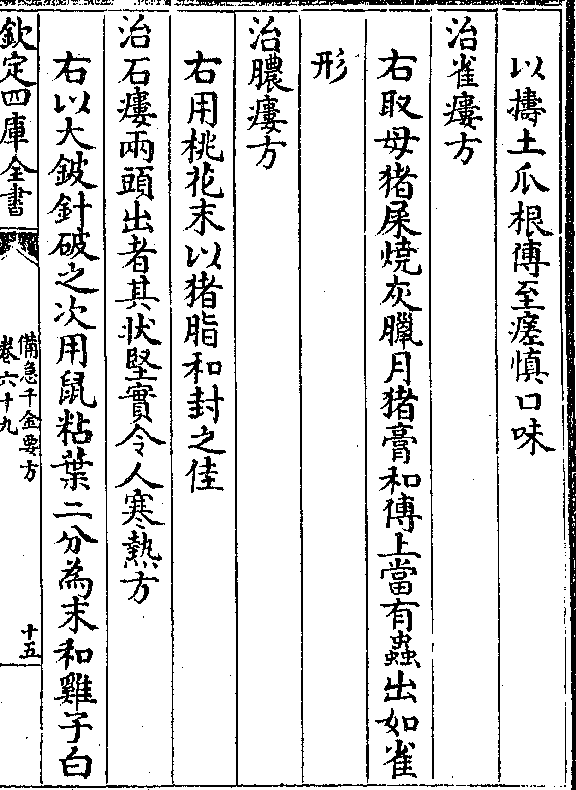 以擣土瓜根傅至瘥慎口味
治雀瘻方
右取母猪屎燒灰臘月猪膏和傅上當有蟲出如雀
形
治膿瘻方
右用桃花末以猪脂和封之佳
治石瘻兩頭出者其状堅實令人寒熱方
右以大鈹針破之次用鼠粘葉二分為末和雞子白
欽定四庫全書
備急千金要方
卷六十九
十五